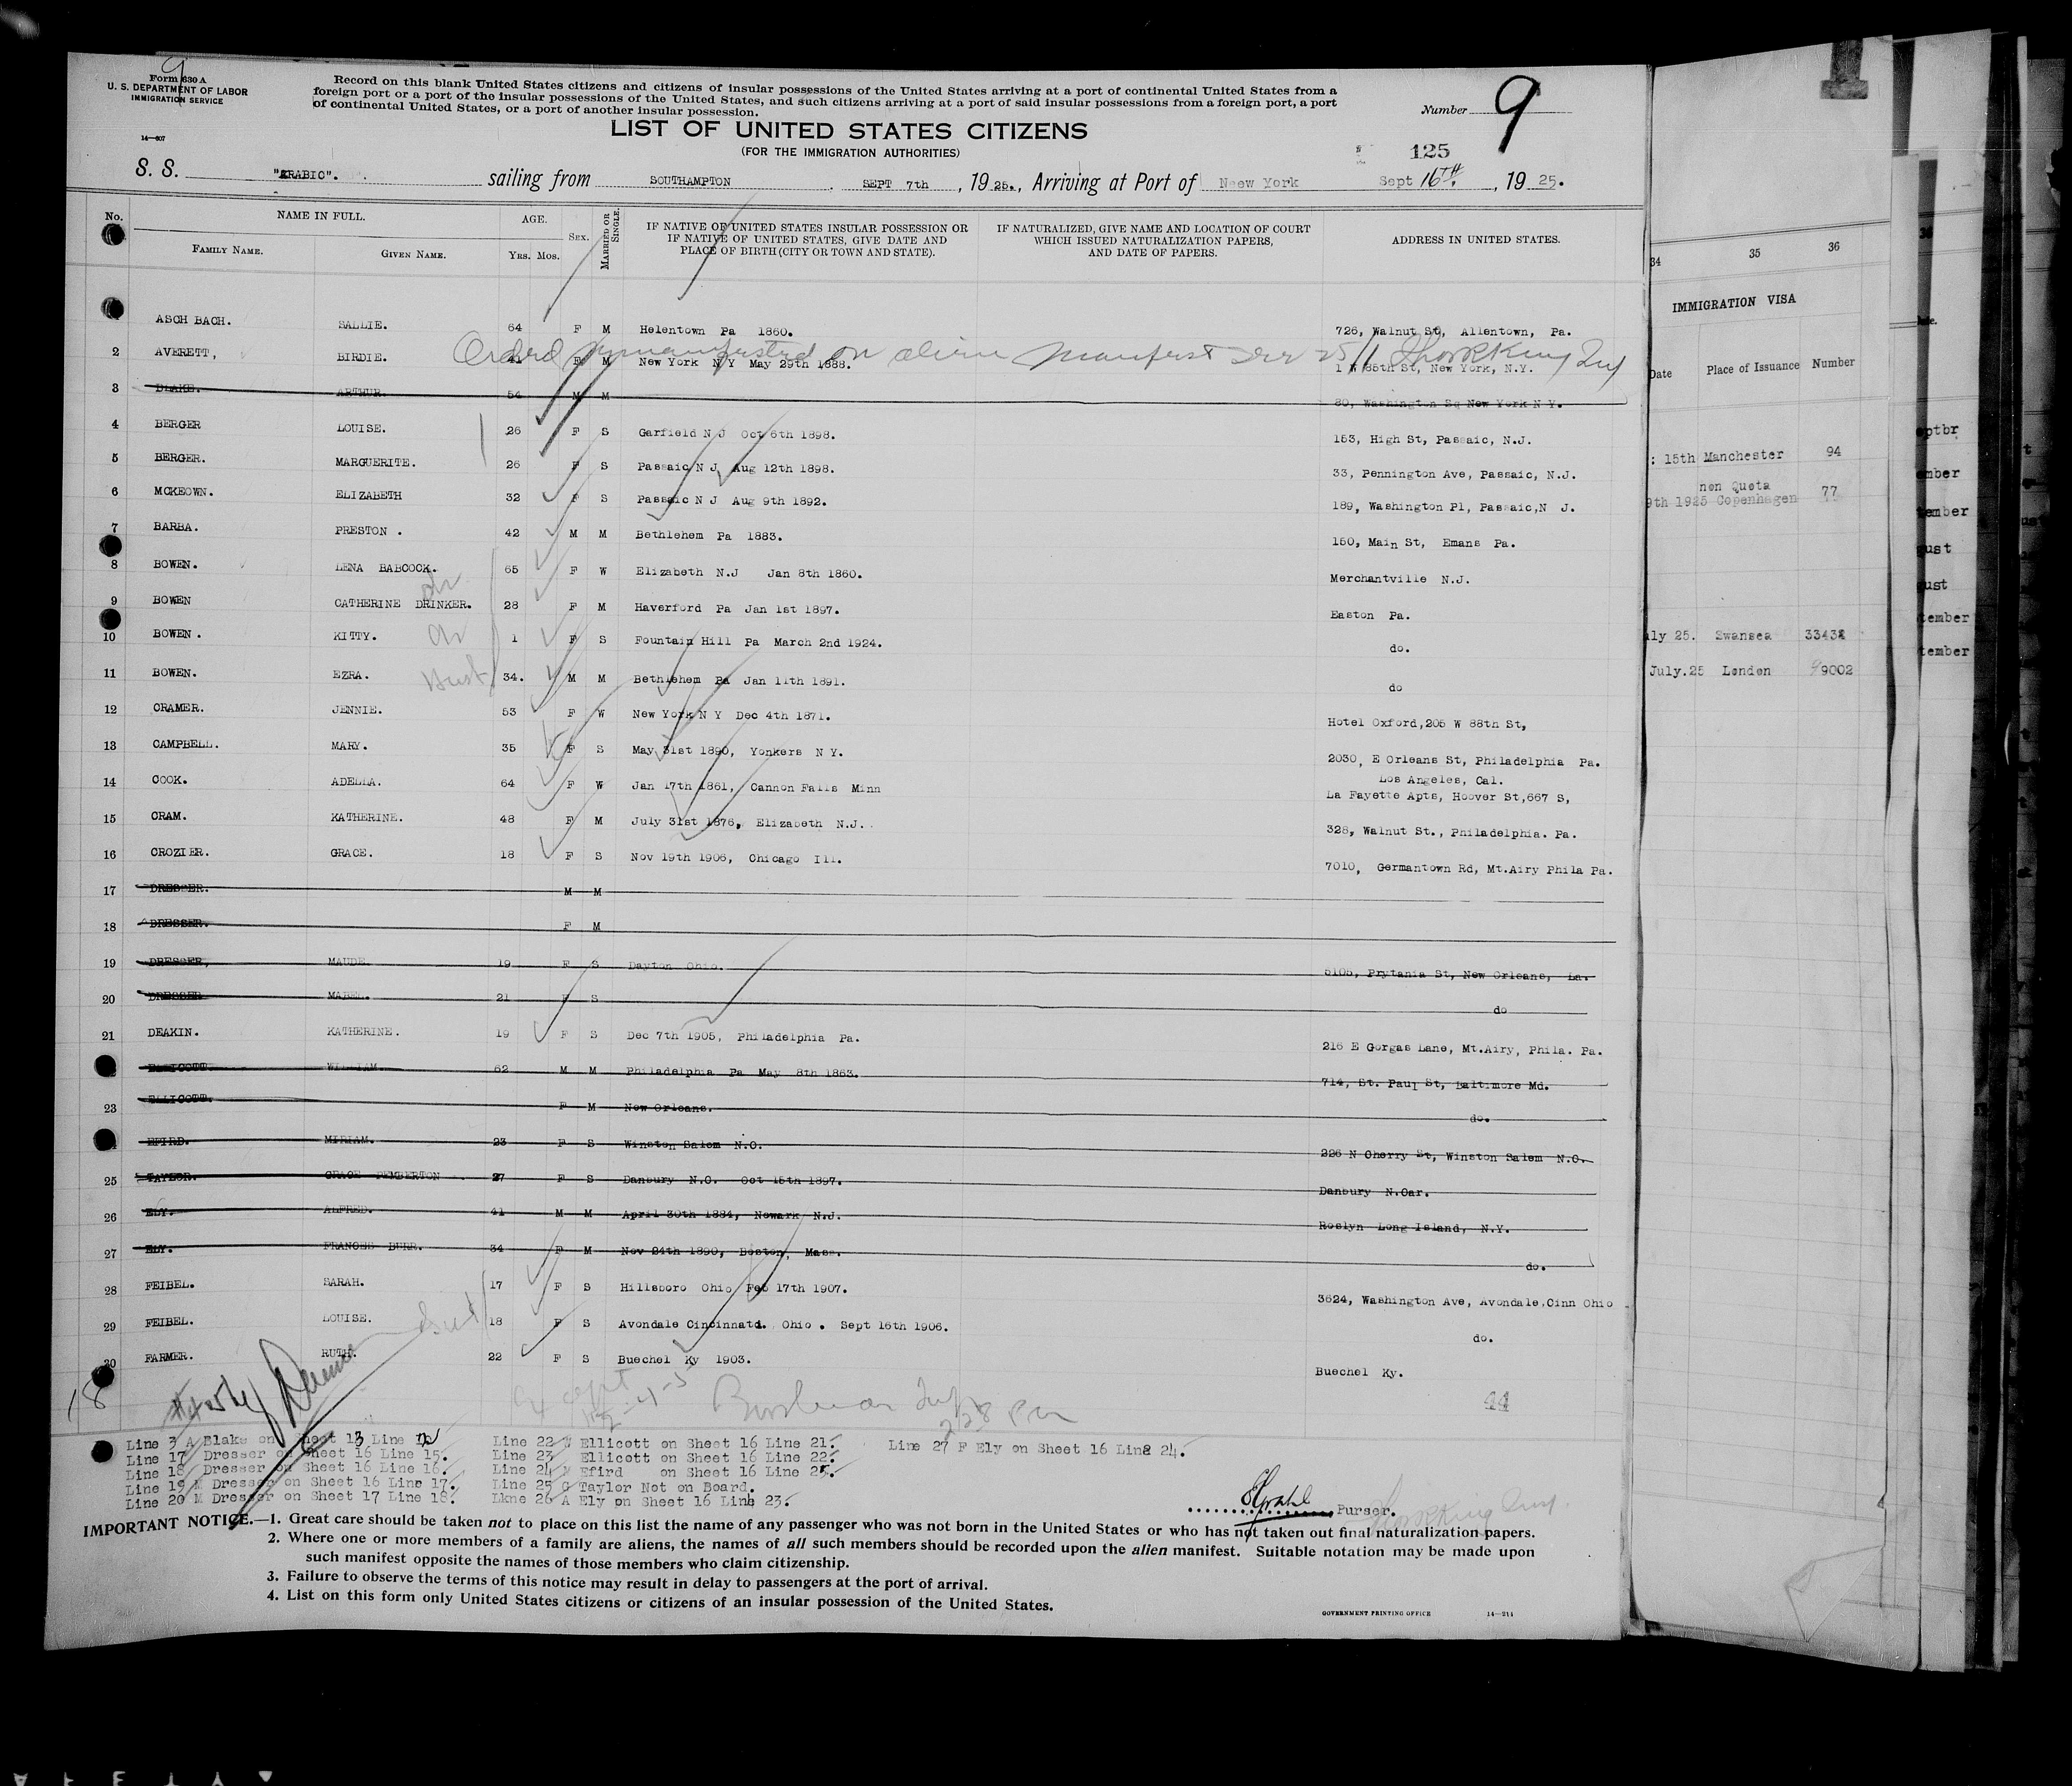 Form 630 A
U. S. DEPARTMENT OF LABOR
IMMIGRATION SERVICE
14—607
Record on this blank United States citizens and citizens of insular possessions of the United States arriving at a port of continental United States from a
foreign port or a port of the insular possessions of the United States, and such citizens arriving at a port of said insular possessions from a foreign port, a port
of continental United States, or a port of another insular possession.
Number 9
LIST OF UNITED STATES CITIZENS
(FOR THE IMMIGRATION AUTHORITIES)
125
S. S. "ARABIC". sailing from SOUTHAMPTON . SEPT 7th , 19 25., Arriving at Port of Neew York Sept 16TH. , 19 25.
No. NAME IN FULL. AGE. SEX. MARRIED OR SINGLE. IF NATIVE OF UNITED STATES INSULAR POSSESSION OR IF NATIVE OF UNITED STATES, GIVE DATE AND PLACE OF BIRTH (CITY OR TOWN AND STATE). IF NATURALIZED, GIVE NAME AND LOCATION OF COURT WHICH ISSUED NATURALIZATION PAPERS, AND DATE OF PAPERS. ADDRESS IN UNITED STATES.
FAMILY NAME. GIVEN NAME. YRS. MOS.
ASCH BACH. SALLIE. 64 F M Helentown Pa 1860. 726, Walnut St, Allentown, Pa.
on alien manifest
2 AVERETT, BIRDIE. 41 F M New York N Y May 29th 1888. 1 W 85th St, New York, N.Y.
3 BLAKE. ARTHUR. 54 M M 80, Washington Sq New York N Y.
4 BERGER LOUISE. 26 F S Garfield N J Oct 6th 1898. 153, High St, Passaic, N.J.
5 BERGER. MARGUERITE. 26 F S Passaic N J Aug 12th 1898. 33, Pennington Ave, Passaic, N.J.
6 MCKEOWN. ELIZABETH 32 F S Passaic N J Aug 9th 1892. 189, Washington Pl, Passaic,N J.
7 BARBA. PRESTON . 42 M M Bethlehem Pa 1883. 150, Main St, Emans Pa.
8 BOWEN. LENA BABCOCK. 65 F W Elizabeth N.J Jan 8th 1860. Merchantville N.J.
9 BOWEN CATHERINE DRINKER. 28 F M Haverford Pa Jan 1st 1897. Easton Pa.
10 BOWEN . KITTY. 1 F S Fountain Hill Pa March 2nd 1924. do.
11 BOWEN. EZRA. 34. M M Bethlehem Pa Jan 11th 1891. do
12 CRAMER. JENNIE. 53 F W New York N Y Dec 4th 1871. Hotel Oxford,205 W 88th St,
13 CAMPBELL. MARY. 35 F S May 31st 1890, Yonkers N Y. 2030, E Orleans St, Philadelphia Pa.
Los Angeles, Cal.
14 COOK. ADELLA. 64 F W Jan 17th 1861, Cannon Falls Minn La Fayette Apts, Hoover St,667 S,
15 CRAM. KATHERINE. 48 F M July 31st 1876, Elizabeth N.J. 328, Walnut St., Philadelphia. Pa.
16 CROZIER. GRACE. 18 F S Nov 19th 1906, Chicago Ill. 7010, Germantown Rd, Mt.Airy Phila Pa.
17 DRESSER. M M
18 DRESSER. F M
19 DRESSER, MAUDE. 19 F S Dayton Ohio. 5105, Prytania St, New Orleans, La.
20 DRESSER MABEL. 21 F S do
21 DEAKIN. KATHERINE. 19 F S Dec 7th 1905, Philadelphia Pa. 216 E Gorgas Lane, Mt.Airy, Phila. Pa.
ELLICOTT WILLIAM. 62 M M Philadelphia Pa May 8th 1863. 714, St. Paul St, Baltimore Md.
23 ELLICOTT. F M New Orleans. do.
EFIRD. MIRIAM. 23 F S Winston Salem N.C. 226 N Cherry St, Winston Salem N.C.
25 TAYLOR. GRACE PEMBERTON . 27 F S Danbury N.C. Oct 15th 1897. Danbury N.Car.
26 ELY. ALFRED. 41 M M April 30th 1884, Newark N.J. Roslyn Long Island, N.Y.
27 ELY. FRANCES BURR. 34 F M Nov 24th 1890, Boston, Mass. do.
28 FEIBEL. SARAH. 17 F S Hillsboro Ohio Feb 17th 1907. 3624, Washington Ave, Avondale,Cinn Ohio
29 FEIBEL. LOUISE. 18 F S Avondale Cincinnati. Ohio . Sept 16th 1906. do.
30 FARMER. RUTH. 22 F S Buechel Ky 1903. Buechel Ky.
18
44
Line 3 A Blake on Sheet 13 Line
Line 17 Dresser on Sheet 16 Line 15.
Line 18 Dresser on Sheet 16 Line 16.
Line 19 M Dresser on Sheet 16 Line 17.
Line 20 M Dresser on Sheet 17 Line 18.
Line 22 W Ellicott on Sheet 16 Line 21.
Line 23 Ellicott on Sheet 16 Line 22.
Line 24 M Efird on Sheet 16 Line 25.
Line 25 G Taylor Not on Board.
Lkne 26 A Ely on Sheet 16 Line 23.
Line 27 F Ely on Sheet 16 Line 24.
Purser.
IMPORTANT NOTICE.—1. Great care should be taken not to place on this list the name of any passenger who was not born in the United States or who has not taken out final naturalization papers.
2. Where one or more members of a family are aliens, the names of all such members should be recorded upon the alien manifest. Suitable notation may be made upon
such manifest opposite the names of those members who claim citizenship.
3. Failure to observe the terms of this notice may result in delay to passengers at the port of arrival.
4. List on this form only United States citizens or citizens of an insular possession of the United States.
GOVERNMENT PRINTING OFFICE 14—211
34 35 36
IMMIGRATION VISA
Date Place of Issuance Number
: 15th Manchester 94
non Quota
9th 1925 Copenhagen 77
ly 25. Swansea 33434
July.25 London 9002
eptbr
mber
tember
gust
gust
tember
tember